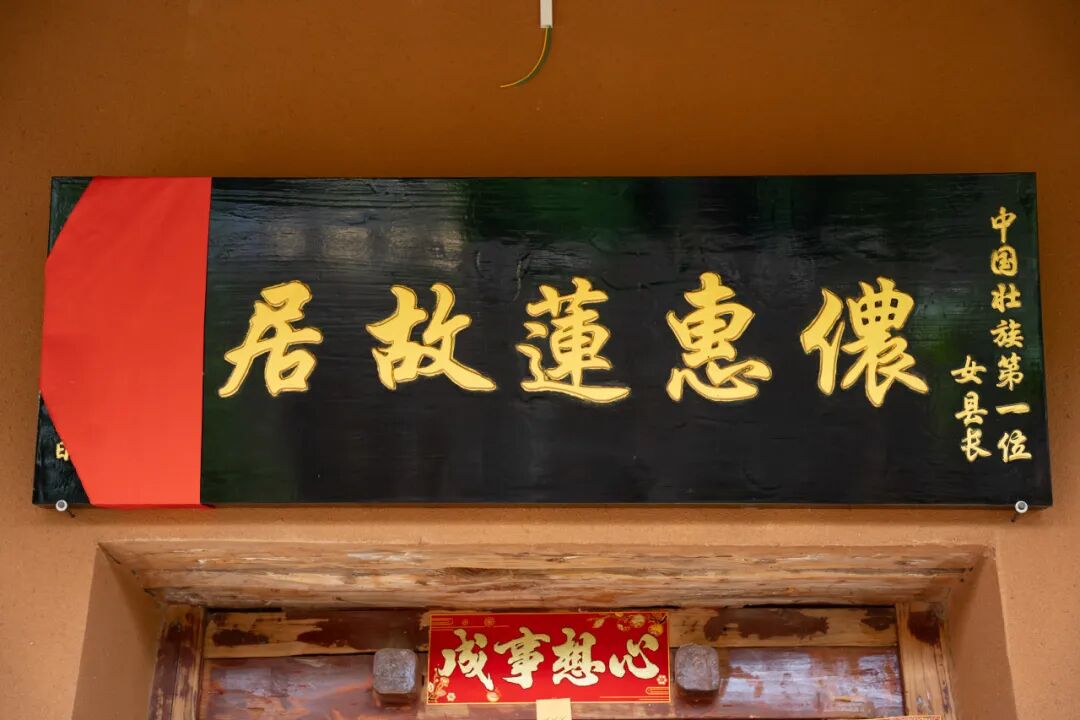 中国壮族第一位
女县长
儂惠蓮故居
心想事成